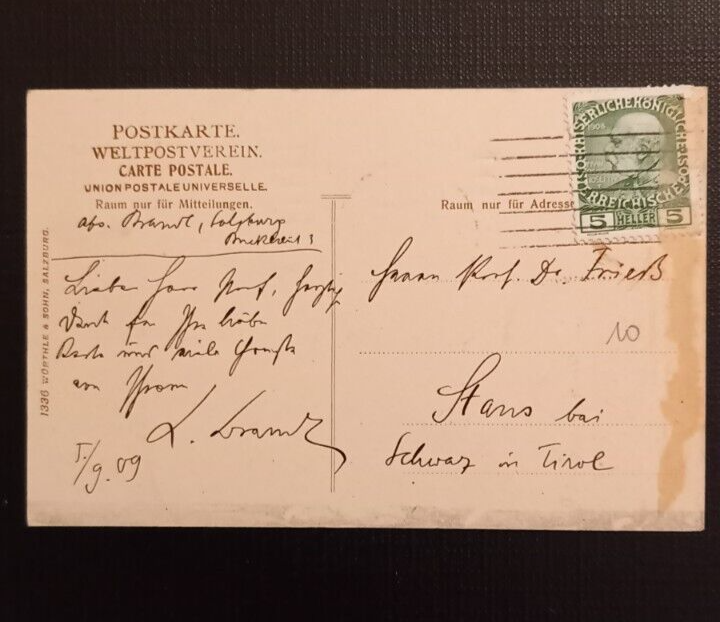 POSTKARTE.
WELTPOSTVEREIN.
CARTE POSTALE.
UNION POSTALE UNIVERSELLE.
Raum nur für Mitteilungen.
abs. Brandl, Salzburg
Lieber Herr Prof, herzlig
Dank für Ihre liebe
Karte und viele Grüße
von Ihrem
L. Brandl
5./9. 09
1336 WÜRTHLE & SOHN, SALZBURG.
Raum nur für Adresse
KAISERLICHE KÖNIGLICHE ÖSTERREICHISCHE POST
1908
5 HELLER 5
Herrn Prof. Dr. Friess
10
Stans bei
Schwaz in Tirol